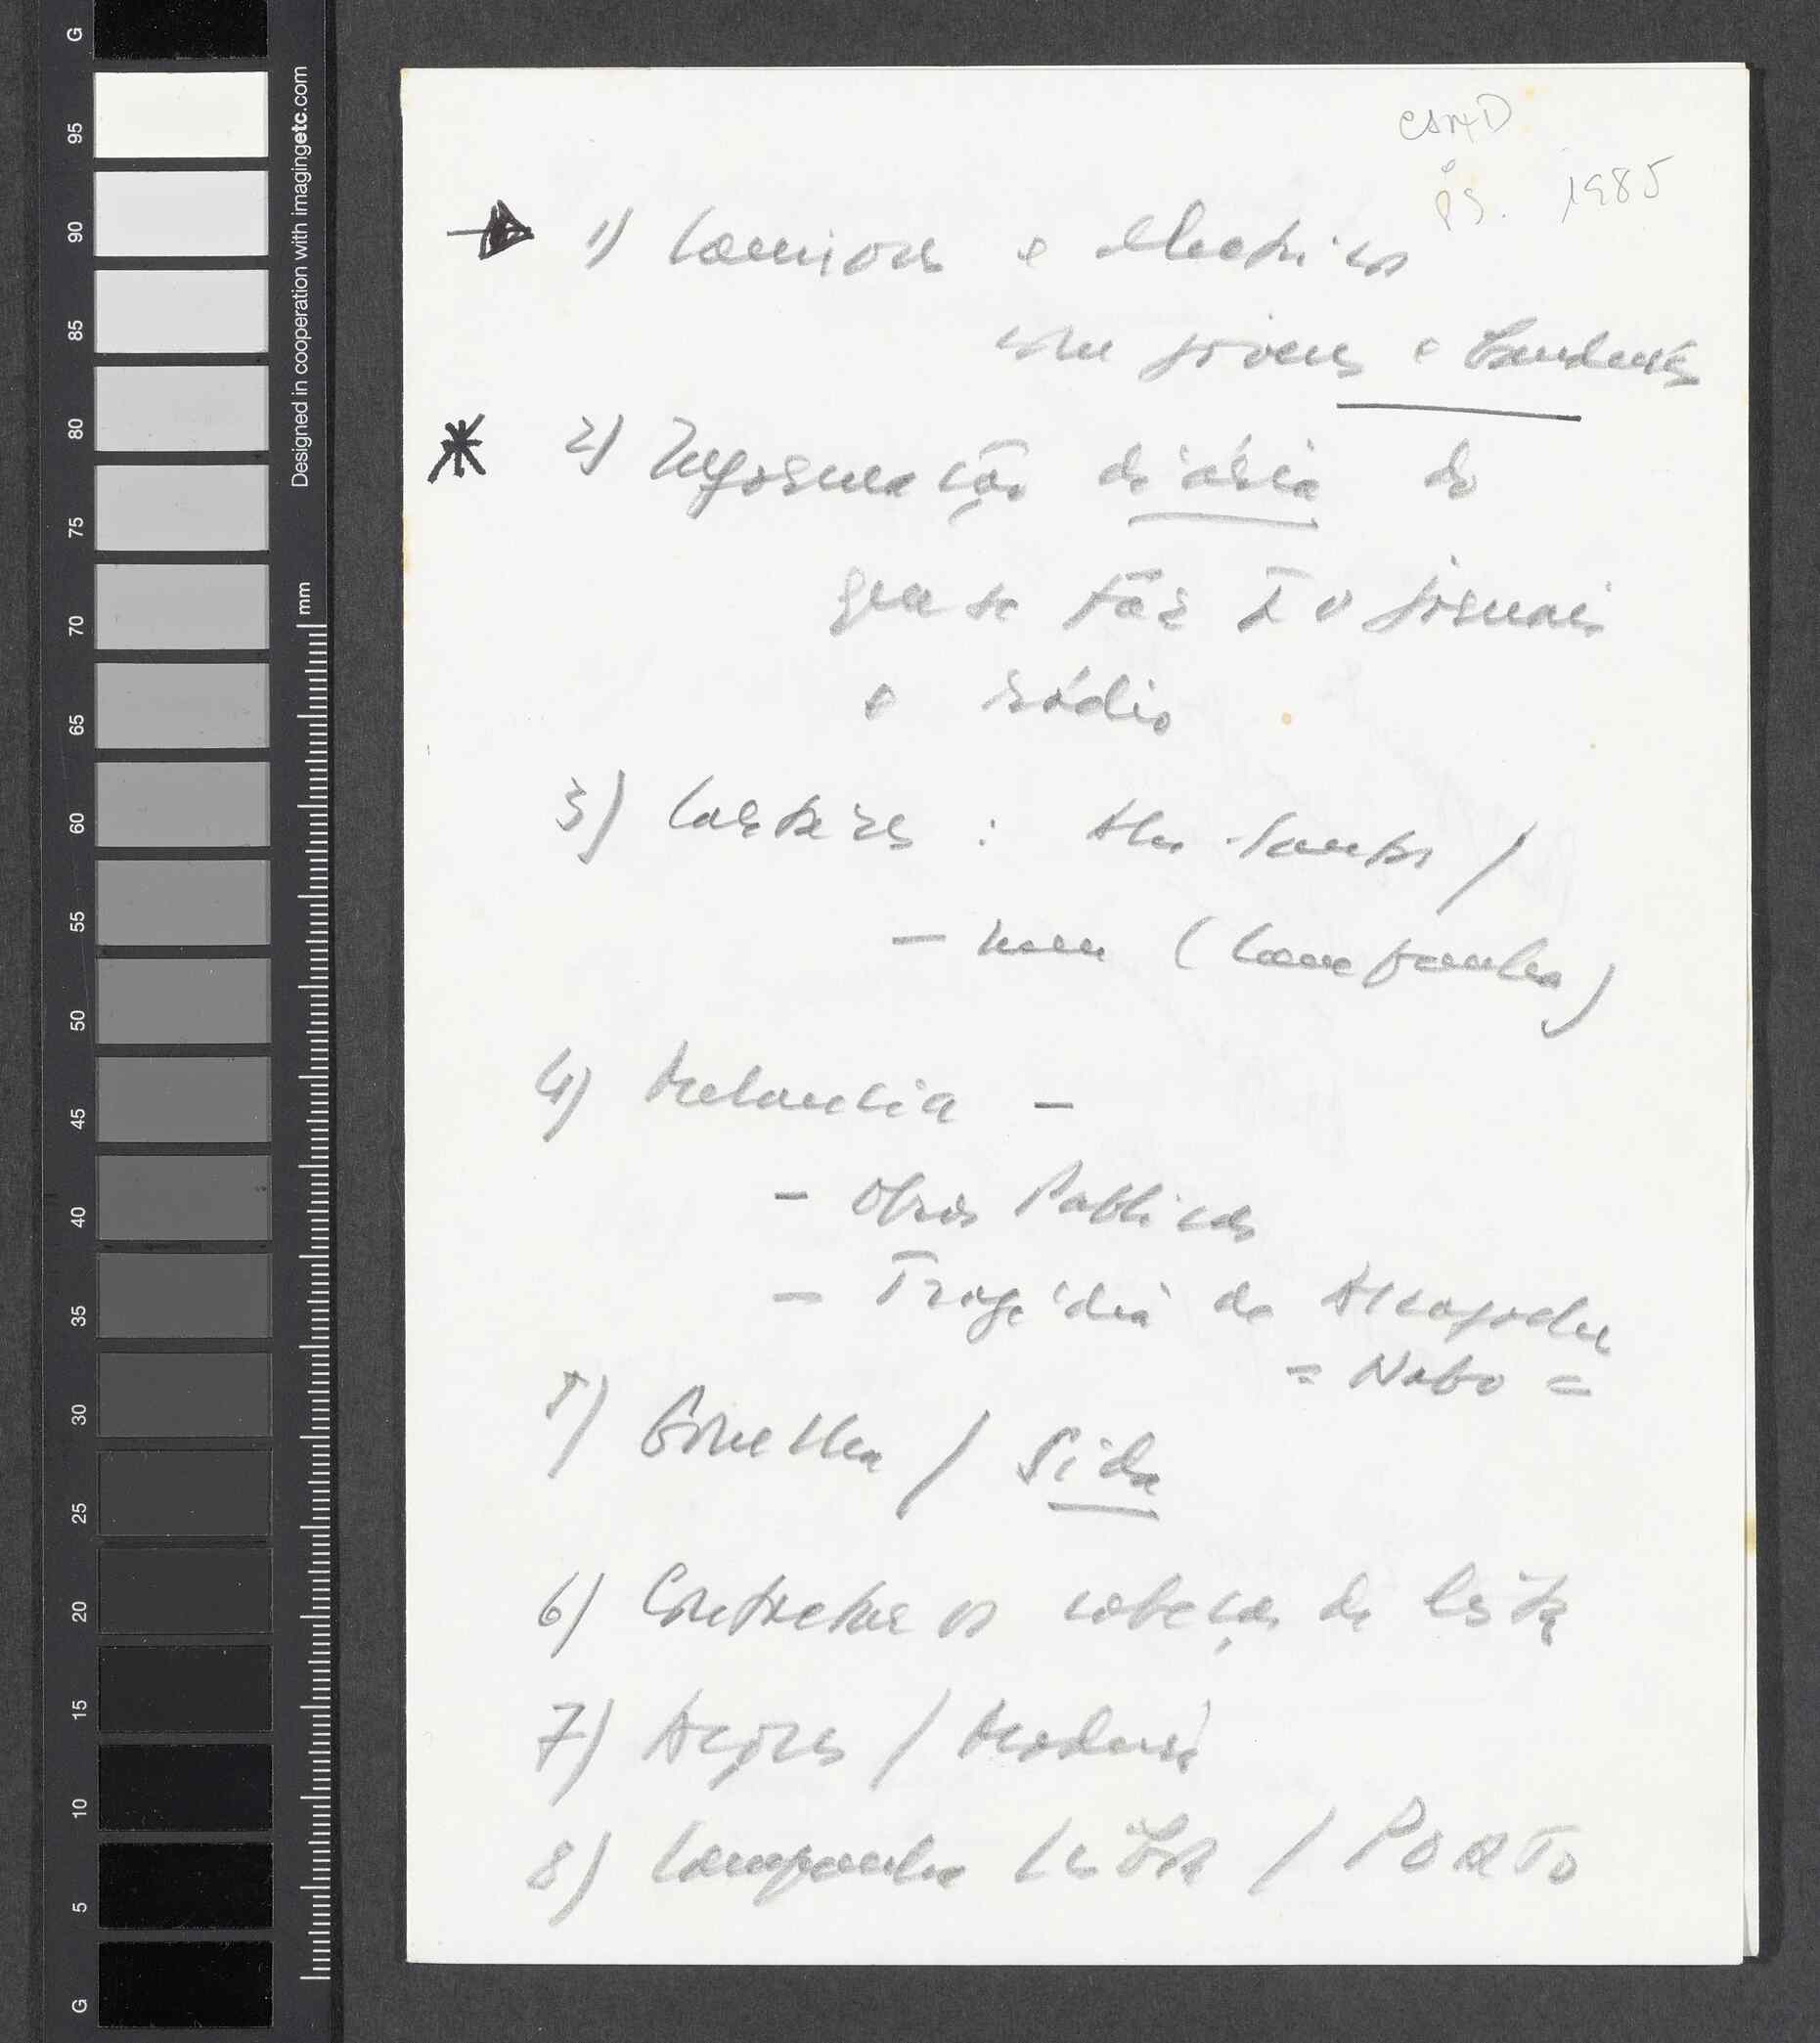 1985
PS.
1) Camiões e eléctricos
com jovens e bandeiras
2) Informação diária do
que se faz TV jornais
e rádio
3) Cartazes :
(Campanha)
4) Melancia -
- Obras Publicas
- Tragédia de Alcafache
= Nabo =
5) / Sida
6) Contactar os cabeças de lista
7) Açores / Madeira
8) Campanha Lisboa / PORTO
G
95
90
85
80
75
70
65
60
55
50
45
40
35
30
25
20
15
10
5
G
Designed in cooperation with imagingetc.com
mm